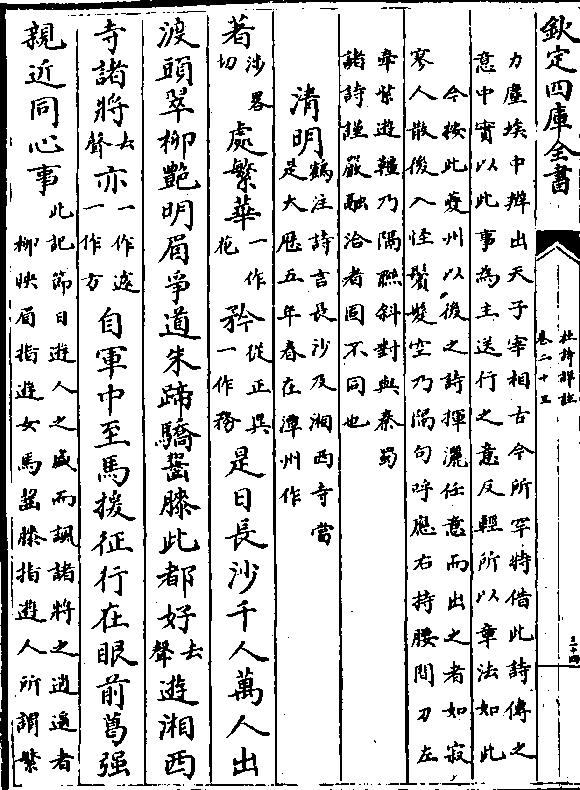 欽定四庫全書
杜詩詳註
卷二十三
三十四
力塵埃中辨出天子宰相古今所罕特借此詩傳之
意中實以此事為主送行之意反輕所以章法如此
今按此夔州以後之詩揮灑任意而出之者如寂
寥人散後入怪鬢髮空乃隔句呼應右持腰間刀左
牽紫遊韁乃隔聯斜對與秦蜀
諸詩謹嚴融洽者固不同也
清明
鶴注詩言長沙及湘西寺當
是大厯五年春在潭州作
著
沙畧
切
處繁華
一作
花
矜
從正異
一作務
是日長沙千人萬人出
渡頭翠柳艷明眉爭道朱蹄驕齧膝此都好
去
聲
遊湘西
寺諸將
去
聲
亦
一作遠
一作方
自軍中至馬援征行在眼前葛强
親近同心事
此記節日遊人之盛而諷諸將之逍遥者
柳映眉指遊女馬齧膝指遊人所謂繁